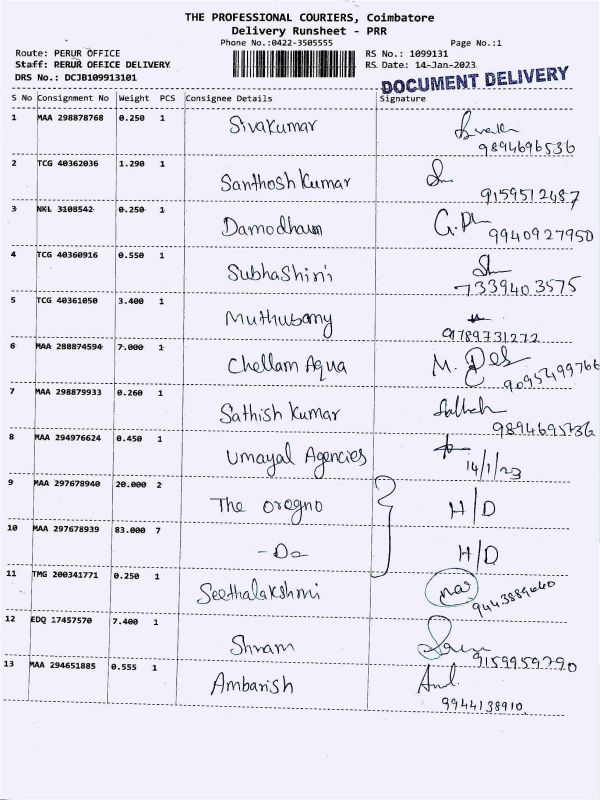 THE PROFESSIONAL COURIERS, Coimbatore
Delivery Runsheet - PRR
Phone No.:0422-3505555 Page No.:1
Route: PERUR OFFICE RS No.: 1099131
Staff: RERUR OFFICE DELIVERY RS Date: 14-Jan-2023
DRS No.: DCJB109913101
DOCUMENT DELIVERY
S No Consignment No Weight PCS Consignee Details Signature
1 MAA 298878768 0.250 1 Sivakumar
9894696536
2 TCG 40362036 1.290 1 Santhosh Kumar
9159512487
3 NKL 3108542 0.250 1 Damodharan
9940927950
4 TCG 40360916 0.550 1 Subhashini
7339403575
5 TCG 40361050 3.400 1 Muthusamy
9789731272
6 MAA 288874594 7.000 1 Chellam Aqua
9095499766
7 MAA 298879933 0.260 1 Sathish Kumar
9894695736
8 MAA 294976624 0.450 1 Umayal Agencies
14/1/23
9 MAA 297678940 20.000 2 The oregno H/D
10 MAA 297678939 83.000 7 -Do- H/D
11 TMG 200341771 0.250 1 Seethalakshmi
9443889640
12 EDQ 17457570 7.400 1 Shram
9159959790
13 MAA 294651885 0.555 1 Ambarish
9944138910